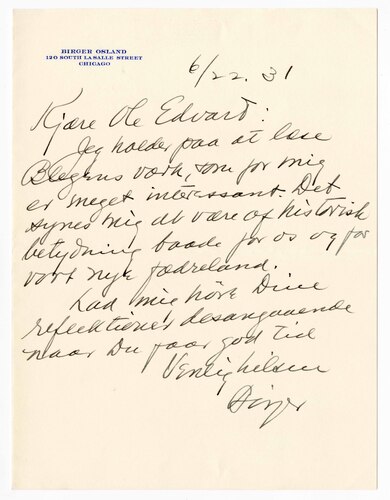 BIRGER OSLAND
120 SOUTH LA SALLE STREET
CHICAGO
6/22. 31
Kjære Ole Edvard:
Jeg holder paa at læse
Blegens værk, som for mig
er meget interessant. Det
synes mig at være af historisk
betydning baade for os og for
vort nye fædreland.
Lad mig höre Dine
reflektioner desangaaende
naar Du faar god tid
Venlig hilsen
Birger